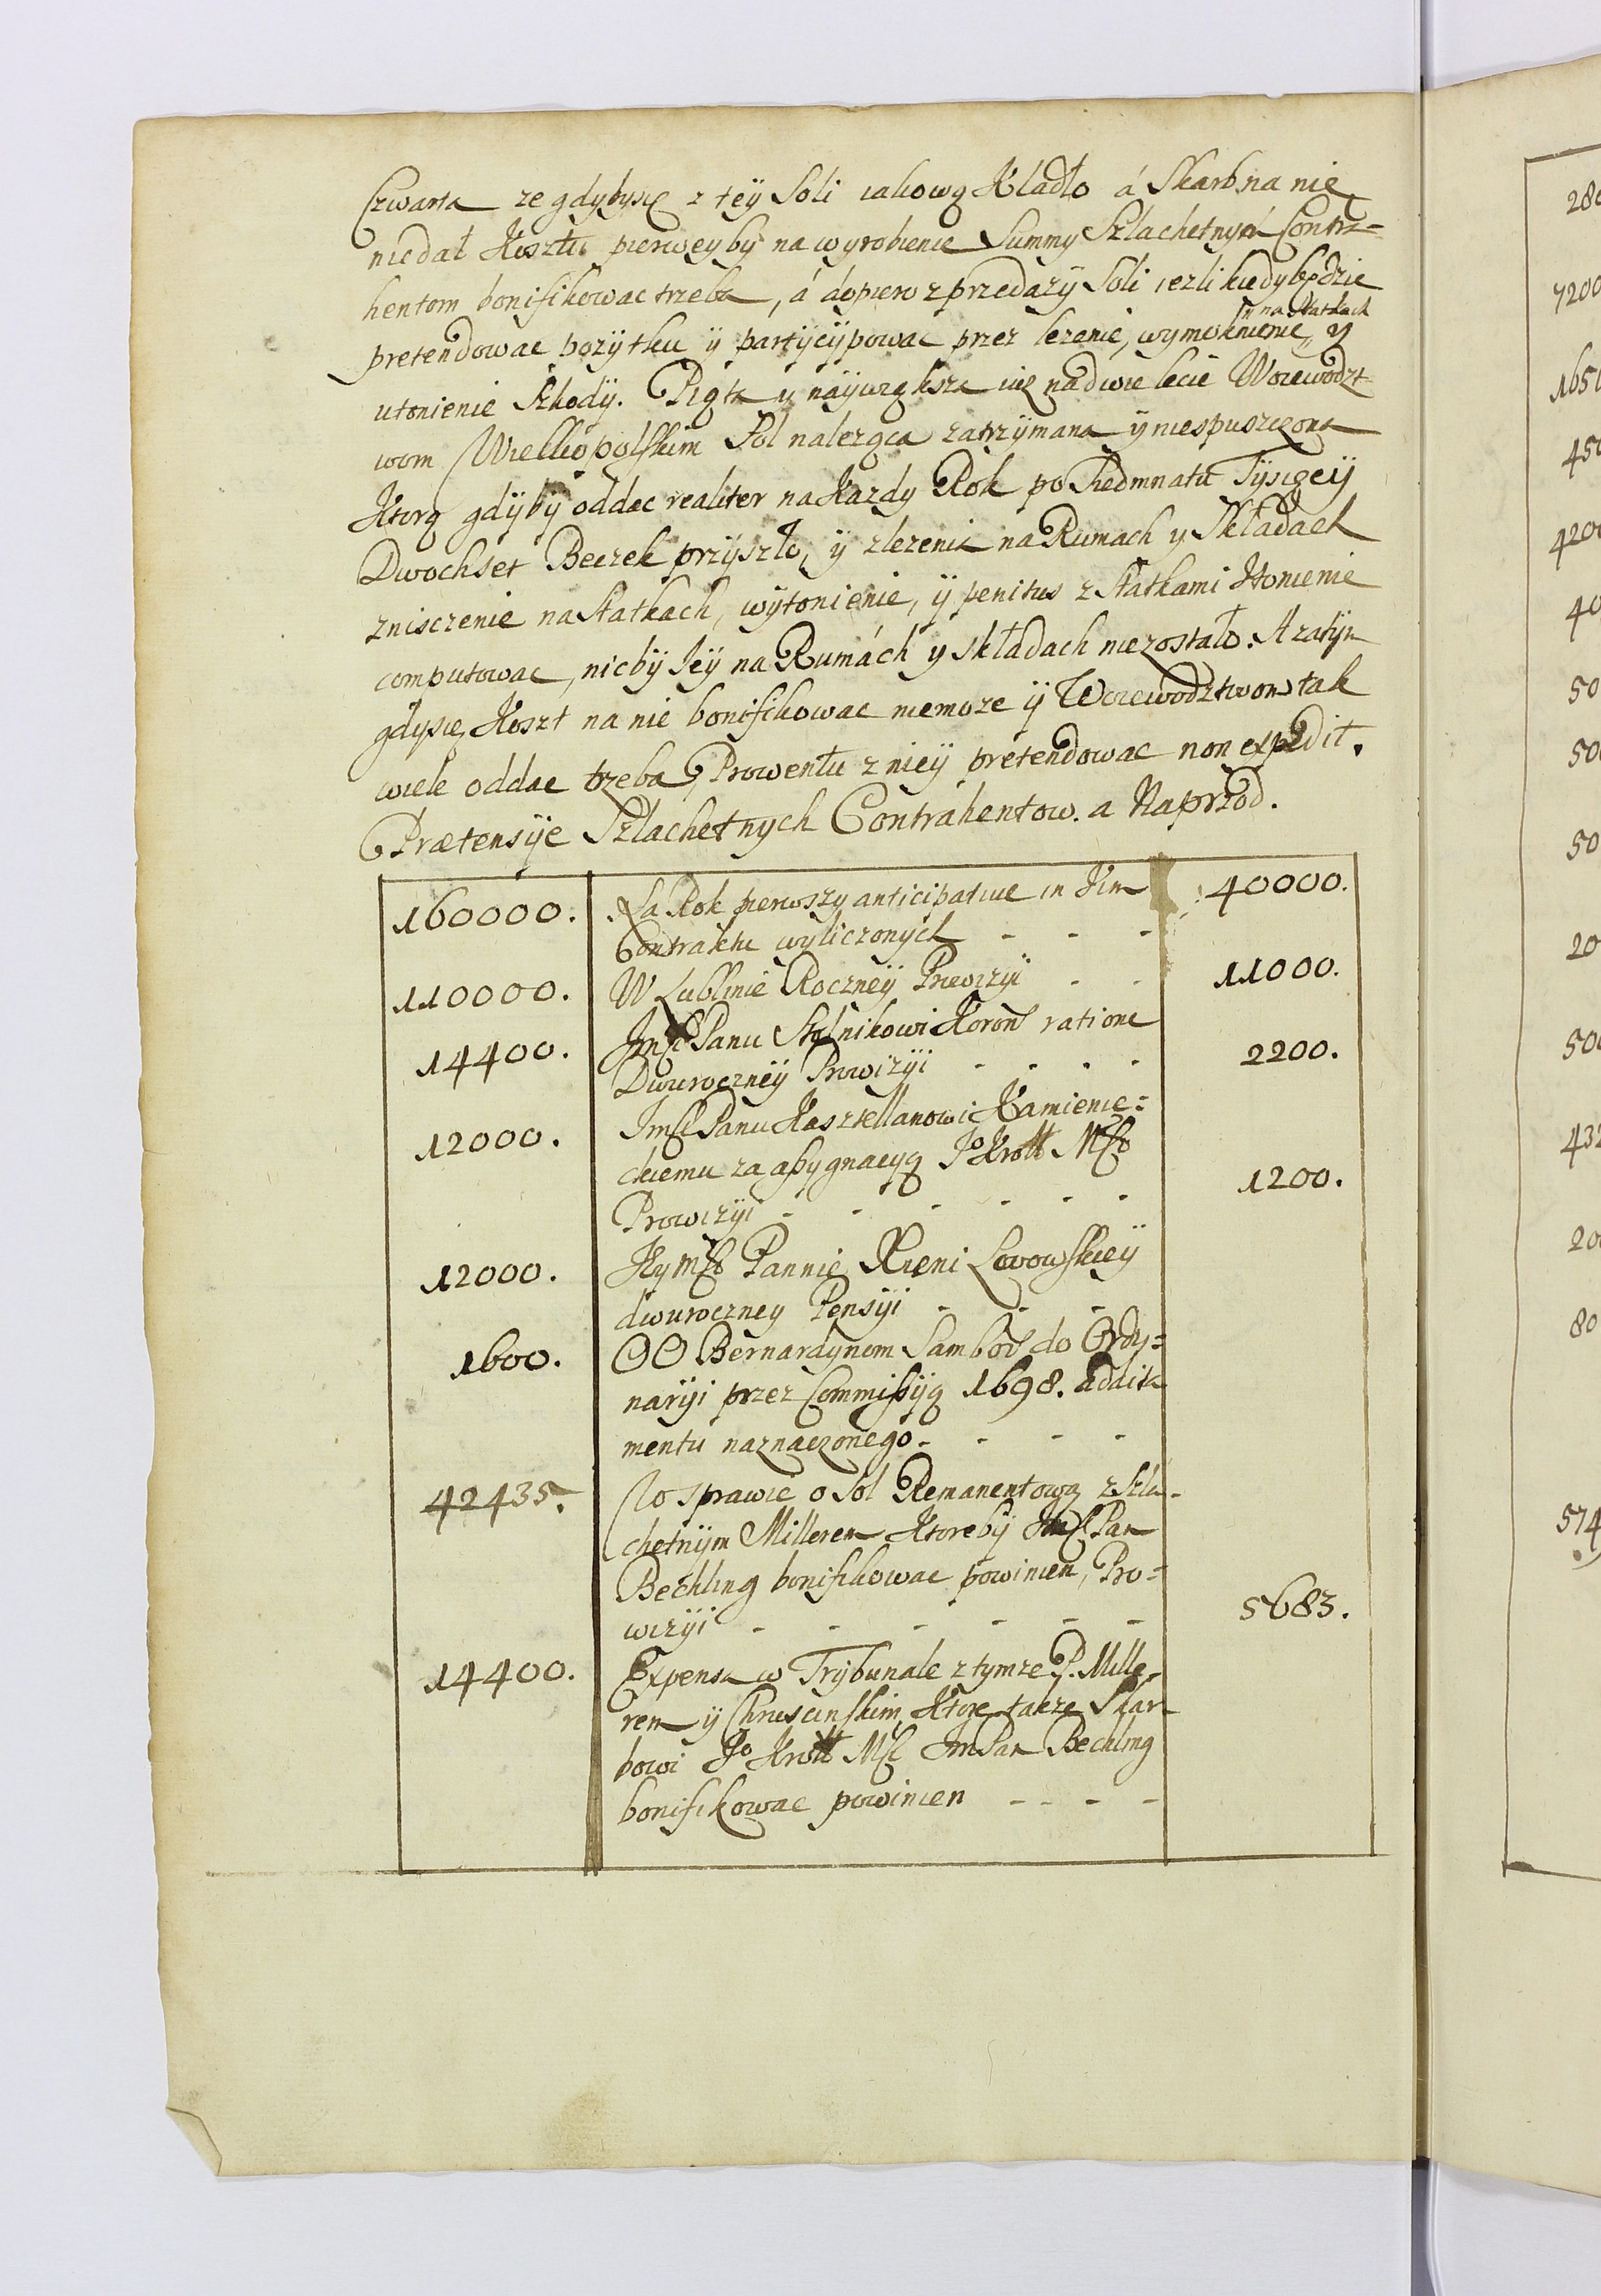 Czwarta ze gdybysię z teÿ Soli iakową Kładło á Skarb na nię
niedał Kosztu pierwey by na wyrobienie Summy Szlachetnym Contra-
hentom bonifikowac trzeba, á dopiero z przedazÿ Soli iezli kiedy będzie
pretendowac pozÿtku ÿ partÿcÿpowac przez lezenie, wymoknienie, y
na Statkach
utonienie Szkodÿ. Piąta y naÿwiększa iuz na dwie lecie Woiewodzt-
wom Wielkopolskim Sol naleząca zatrzÿmana ÿ niespuszczona
Ktorą gdÿbÿ oddac realiter na Kazdy Rok po Siedmnastu Tÿsięcÿ
Dwochset Beczek przÿszło, ÿ zlezenie na Rumach y Składach
znisczenie na Statkach, wÿtonienie, ÿ penitus z Statkami Utonienie
computowac, nic bÿ Jeÿ na Rumách y Składach niezostało. A zatÿm
gdysię Koszt na nię bonifikowac niemoze ÿ Woiewodztwom tak
wiele oddac trzeba, Prowentu z nieÿ pretendowac non expedit.
Prætensÿe Szlachetnych Contrahentow. a Naprzod.
160000. Za Rok pierwszy anticipative in Vim 40000.
Contraktu wyliczonÿch - - -
110000. W Lublinie Roczneÿ Prowizÿi - - 11000.
14400. Jmść Panu Stolnikowi Koroñ ratione
Dwuroczneÿ Prowizÿi - - - - 2200.
12000. Jmść Panu Kasztellanowi Kamienie=
ckiemu za assygnacyą Jo Kroll Mści
Prowizÿi - - - - - - 1200.
12000. Jeymści Pannie Xieni Lwowskieÿ
dwuroczney Pensÿi - - -
1600. OO Bernardynom Sambor do Ordy=
narÿi przez Commissÿą 1698. addita
mentu naznaczonego - - - -
42435. W sprawie o Sol Remanentową z Szla-
chetnÿm Millerem Ktore bÿ Jmść Pan
Bechling bonifikowac powinien, Pro=
wizÿi - - - - - - 5683.
14400. Expensa w Trÿbunale z tymze P. Mille-
rem ÿ Chruscinskim, Ktore takze Skar-
bowi Jo Kroll Mści Jm Pan Bechling
bonifikowac powinien - - - -
280
7200
1650
450
4200
40
50
50
50
20
50
432
20
80
574